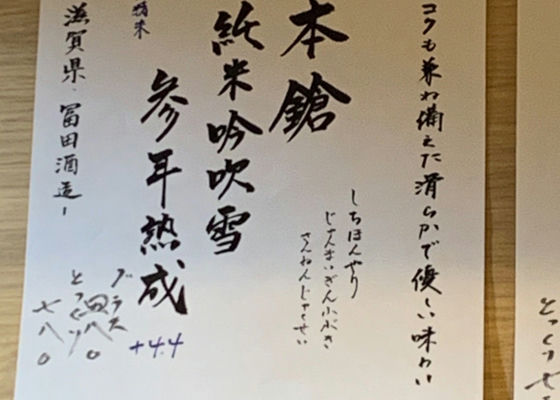 コクも兼ね備えた滑らかで優しい味わい
本鎗
しちほんやり
じゅんまいぎんふぶき
さんねんじゅくせい
純米吟吹雪
参年熟成
+4.4
精米
グラス 四八〇
とっくり 七八〇
滋賀県・冨田酒造ー
とっくり 七